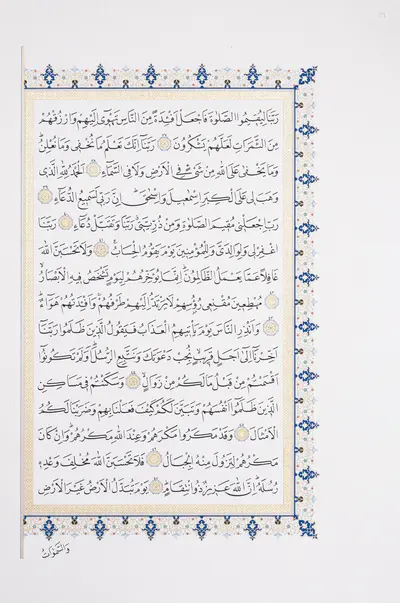 رَبَّنَا لِيُقِيمُوا الصَّلٰوةَ فَاجْعَلْ اَفْـِٔدَةً مِنَ النَّاسِ تَهْوٖٓي اِلَيْهِمْ وَارْزُقْهُمْ
مِنَ الثَّمَرَاتِ لَعَلَّهُمْ يَشْكُرُونَ رَبَّنَٓا اِنَّكَ تَعْلَمُ مَا نُخْفٖي وَمَا نُعْلِنُ
وَمَا يَخْفٰى عَلَى اللّٰهِ مِنْ شَيْءٍ فِي الْاَرْضِ وَلَا فِي السَّمَٓاءِ اَلْحَمْدُ لِلّٰهِ الَّذٖي
وَهَبَ لٖي عَلَى الْكِبَرِ اِسْمٰعٖيلَ وَاِسْحٰقَ اِنَّ رَبّٖي لَسَمٖيعُ الدُّعَٓاءِ
رَبِّ اجْعَلْنٖي مُقٖيمَ الصَّلٰوةِ وَمِنْ ذُرِّيَّتٖي رَبَّنَا وَتَقَبَّلْ دُعَٓاءِ رَبَّنَا
اغْفِرْ لٖي وَلِوَالِدَيَّ وَلِلْمُؤْمِنٖينَ يَوْمَ يَقُومُ الْحِسَابُ وَلَا تَحْسَبَنَّ اللّٰهَ
غَافِلًا عَمَّا يَعْمَلُ الظَّالِمُونَ اِنَّمَا يُؤَخِّرُهُمْ لِيَوْمٍ تَشْخَصُ فٖيهِ الْاَبْصَارُ
مُهْطِعٖينَ مُقْنِعٖي رُؤُسِهِمْ لَا يَرْتَدُّ اِلَيْهِمْ طَرْفُهُمْ وَاَفْـِٔدَتُهُمْ هَوَٓاءٌ
وَاَنْذِرِ النَّاسَ يَوْمَ يَأْتٖيهِمُ الْعَذَابُ فَيَقُولُ الَّذٖينَ ظَلَمُوا رَبَّنَٓا
اَخِّرْنَٓا اِلٰٓى اَجَلٍ قَرٖيبٍ نُجِبْ دَعْوَتَكَ وَنَتَّبِعِ الرُّسُلَ اَوَلَمْ تَكُونُٓوا
اَقْسَمْتُمْ مِنْ قَبْلُ مَا لَكُمْ مِنْ زَوَالٍ وَسَكَنْتُمْ فٖي مَسَاكِنِ
الَّذٖينَ ظَلَمُٓوا اَنْفُسَهُمْ وَتَبَيَّنَ لَكُمْ كَيْفَ فَعَلْنَا بِهِمْ وَضَرَبْنَا لَكُمُ
الْاَمْثَالَ وَقَدْ مَكَرُوا مَكْرَهُمْ وَعِنْدَ اللّٰهِ مَكْرُهُمْ وَاِنْ كَانَ
مَكْرُهُمْ لِتَزُولَ مِنْهُ الْجِبَالُ فَلَا تَحْسَبَنَّ اللّٰهَ مُخْلِفَ وَعْدِهٖ
رُسُلَهُ اِنَّ اللّٰهَ عَزٖيزٌ ذُو انْتِقَامٍ يَوْمَ تُبَدَّلُ الْاَرْضُ غَيْرَ الْاَرْضِ
وَالسَّمٰوَاتُ